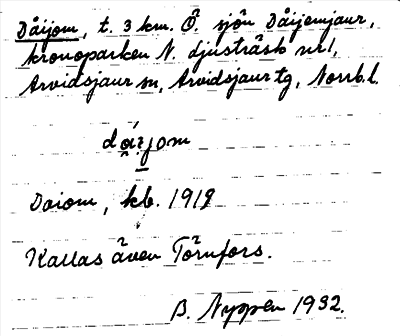 Dåijom, t. 3 km. Ö. sjön Dåijemjaur,
kronoparken N. djusträsk nr 1,
Arvidsjaur sn, Arvidsjaur tg, Norrb.l.
Daiom, kb. 1919
Kallas även Törnfors.
B. Nyppen 1932.